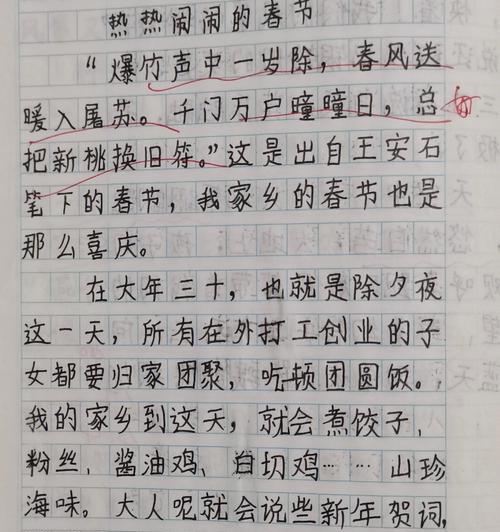 热热闹闹的春节
“爆竹声中一岁除，春风送
暖入屠苏。千门万户曈曈日，总
把新桃换旧符。”这是出自王安石
笔下的春节，我家乡的春节也是
那么喜庆。
在大年三十，也就是除夕夜
这一天，所有在外打工创业的子
女都要归家团聚，吃顿团圆饭。
我的家乡到这天，就会煮饺子、
粉丝、酱油鸡、白切鸡……山珍
海味。大人呢就会说些新年贺词，